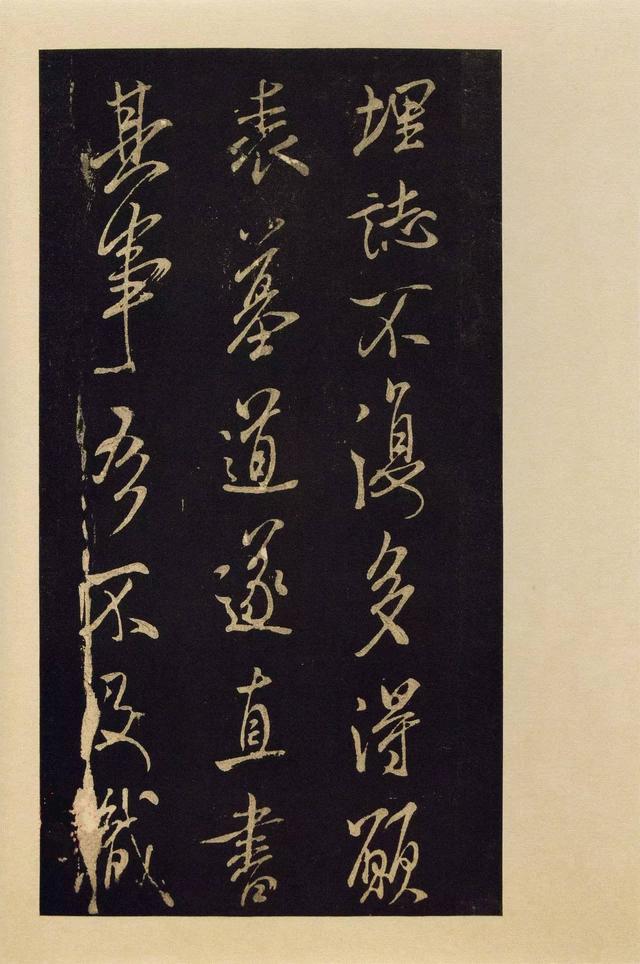 埋誌不復多得願
表墓道遂直書
其事吾不及識